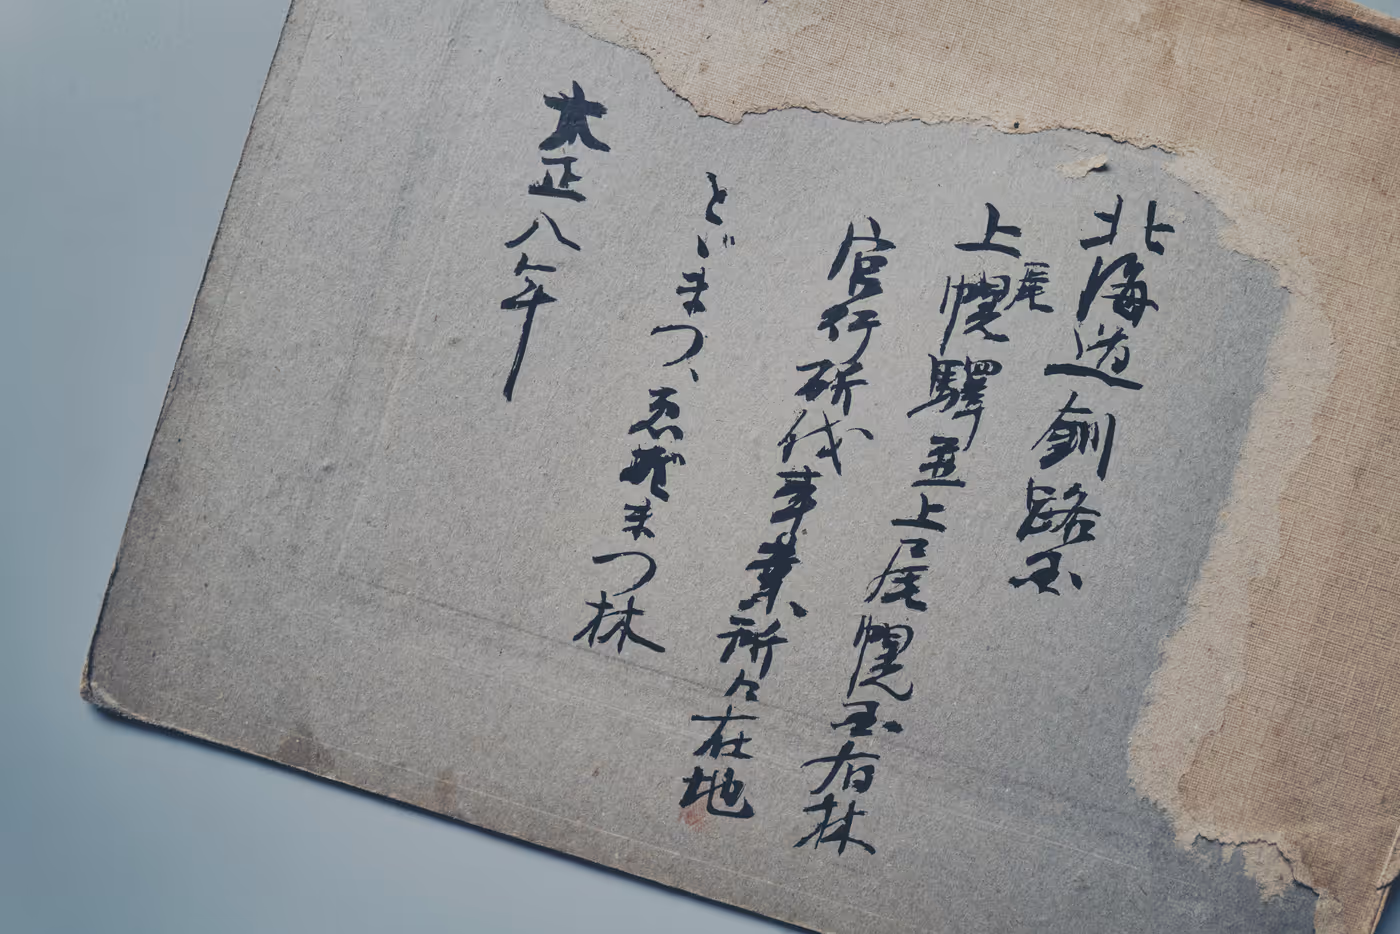 北海道釧路玉
上尾幌驛並上尾幌玉有林
官行斫伐事業所々在地
とゞまつ、ゑぞまつ林
大正八年